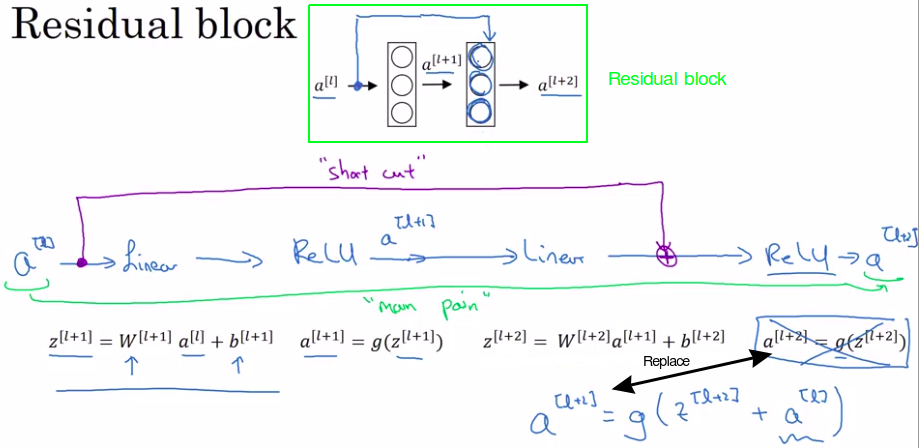 Residual block
a^[l] a^[l+1] a^[l+2]
Residual block
"short cut"
a^[l] → Linear → ReLU a^[l+1] → Linear → ReLU → a^[l+2]
"main pain"
z^[l+1] = W^[l+1] a^[l] + b^[l+1] a^[l+1] = g(z^[l+1]) z^[l+2] = W^[l+2]a^[l+1] + b^[l+2] a^[l+2] = g(z^[l+2])
Replace
a^[l+2] = g(z^[l+2] + a^[l])